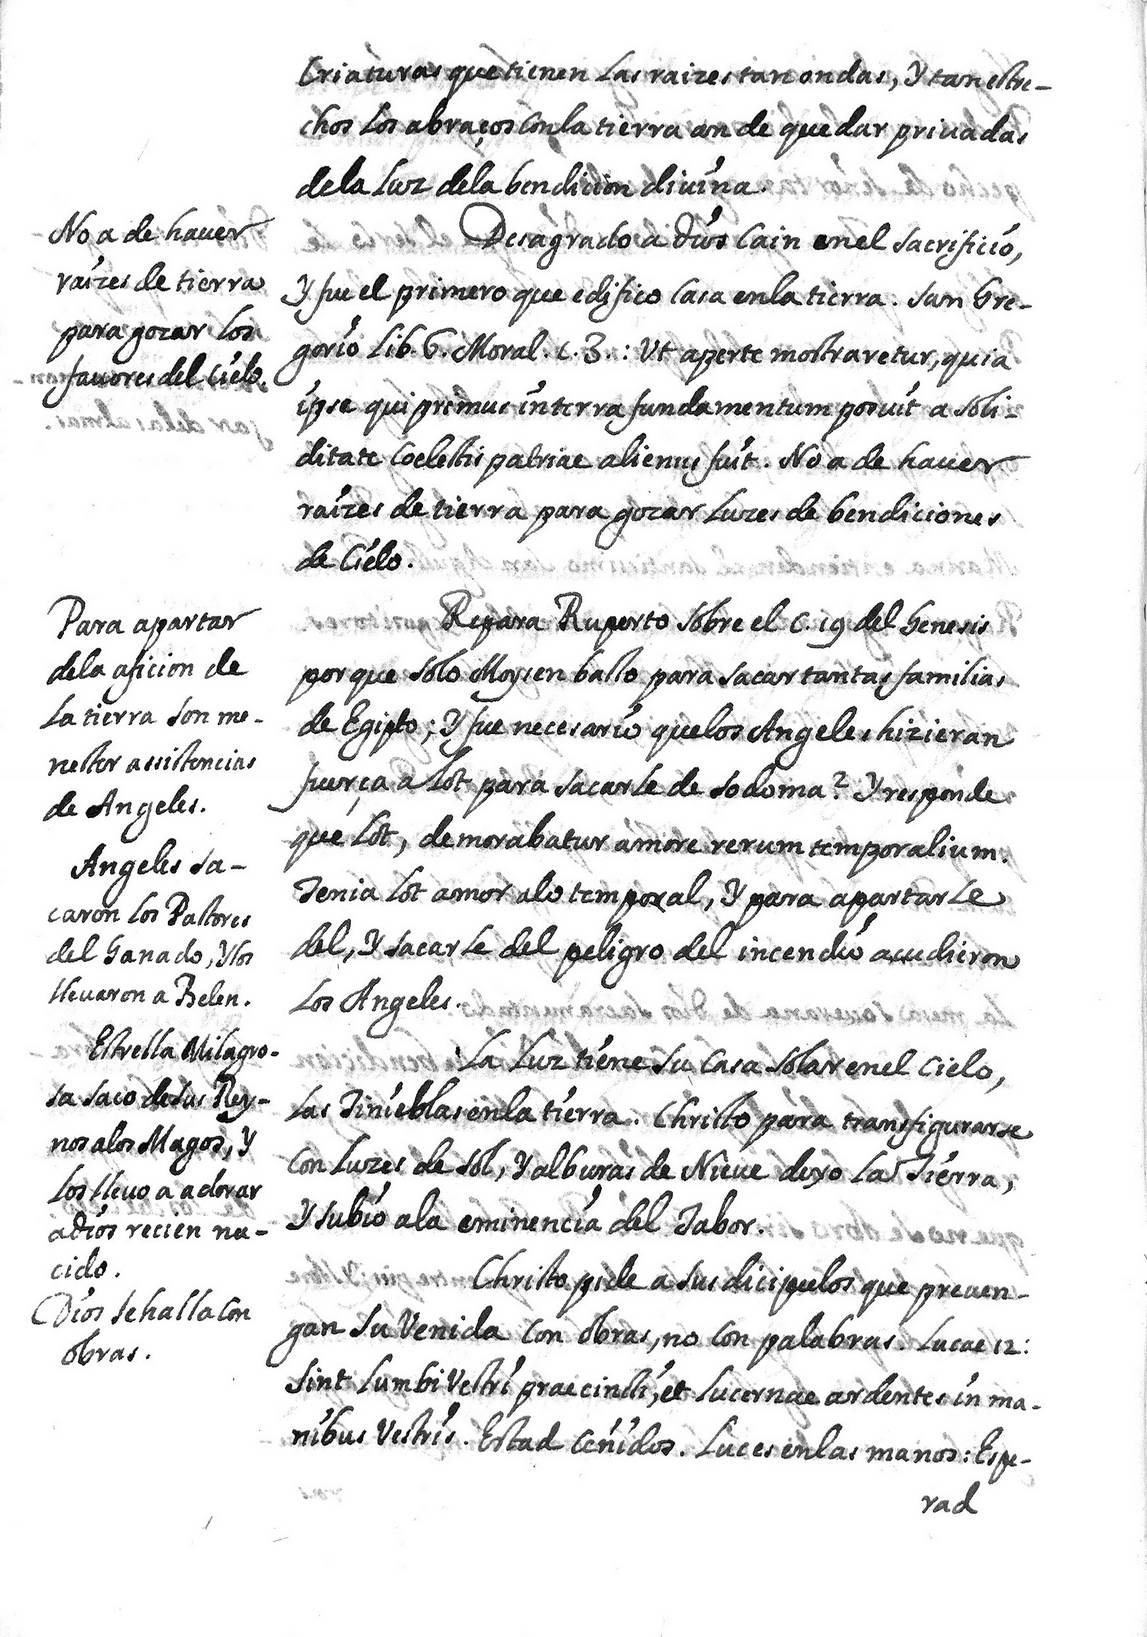 Criaturas que tienen las raizes tan ondas, Y tan estre-
chos los abraços con la tierra an de quedar priuadas
de la luz de la bendicion diuina.
Desagrado a dios Cain en el sacrificio,
Y fue el primero que edifico casa en la tierra. San Gre-
gorio Lib. 6. Moral. c. 3.: Vt aperte mostraretur, quia
ipse qui primus in terra fundamentum posuit a soli-
ditate Coelestis patriae alienus fuit. No a de hauer
raizes de tierra para gozar luzes de bendiciones
de Cielo.
Repara Ruperto sobre el C. 19 del Genesis
porque solo Moysen basto para sacar tantas familias
de Egipto; Y fue necesario que los Angeles hizieran
fuerça a lot para sacarle de sodoma? Y responde
que lot, demorabatur amore rerum temporalium.
Tenia lot amor alo temporal, Y para apartarle
del, Y sacarle del peligro del incendio acudieron
los Angeles.
La luz tiene su casa solar en el Cielo,
las Tinieblas en la tierra. Christo para transfigurarse
con luzes de sol, Y alburas de Nieue dexo la Tierra,
Y subio ala eminencia del Tabor.
Christo pide a sus dicipulos que preuen-
gan su Venida con obras, no con palabras. Lucae 12:
Sint lumbi Vestri praecincti, et lucernae ardentes in ma-
nibus Vestris. Estad Ceñidos. Luces en las manos: Espe-
rad
No a de hauer
raizes de tierra
para gozar los
fauores del Cielo.
Para apartar
dela aficion de
la tierra son me-
nester assistencias
de Angeles.
Angeles sa-
caron los Pastores
del Ganado, Y los
lleuaron a Belen.
Estrella Milagro-
sa saco de sus Rey-
nos alos Magos, Y
los lleuo a adorar
adios recien na-
cido.
Dios se halla con
obras.